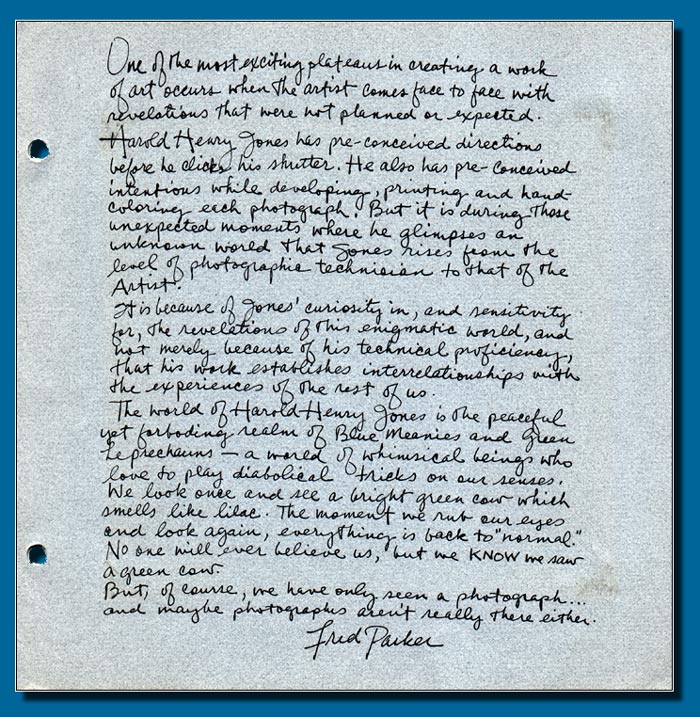 One of the most exciting plateaus in creating a work
of art occurs when the artist comes face to face with
revelations that were not planned or expected.
Harold Henry Jones has pre-conceived directions
before he clicks his shutter. He also has pre-conceived
intentions while developing, printing and hand-
coloring each photograph. But it is during those
unexpected moments where he glimpses an
unknown world that Jones rises from the
level of photographic technician to that of the
Artist.
It is because of Jones' curiosity in, and sensitivity
for, the revelations of this enigmatic world, and
not merely because of his technical proficiency,
that his work establishes interrelationships with
the experiences of the rest of us.
The world of Harold Henry Jones is the peaceful
yet forboding realm of Blue Meanies and Green
Leprechauns — a world of whimsical beings who
love to play diabolical tricks on our senses.
We look once and see a bright green cow which
smells like lilac. The moment we rub our eyes
and look again, everything is back to "normal."
No one will ever believe us, but we KNOW we saw
a green cow
But, of course, we have only seen a photograph...
and maybe photographs aren't really there either.
Fred Parker